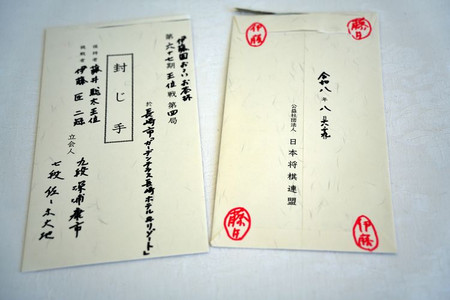 伊藤園お～いお茶杯
第六十七期王位戦 第四局
於 長崎市「ガーデンテラス長崎ホテル&リゾート」
封じ手
保持者 藤井聡太王位
挑戦者 伊藤 匠 二冠
立会人 九段 深浦康市
七段 佐々木大地
伊藤
藤井
令和八年 八
公益社団法人 日本将棋連盟
藤井
伊藤